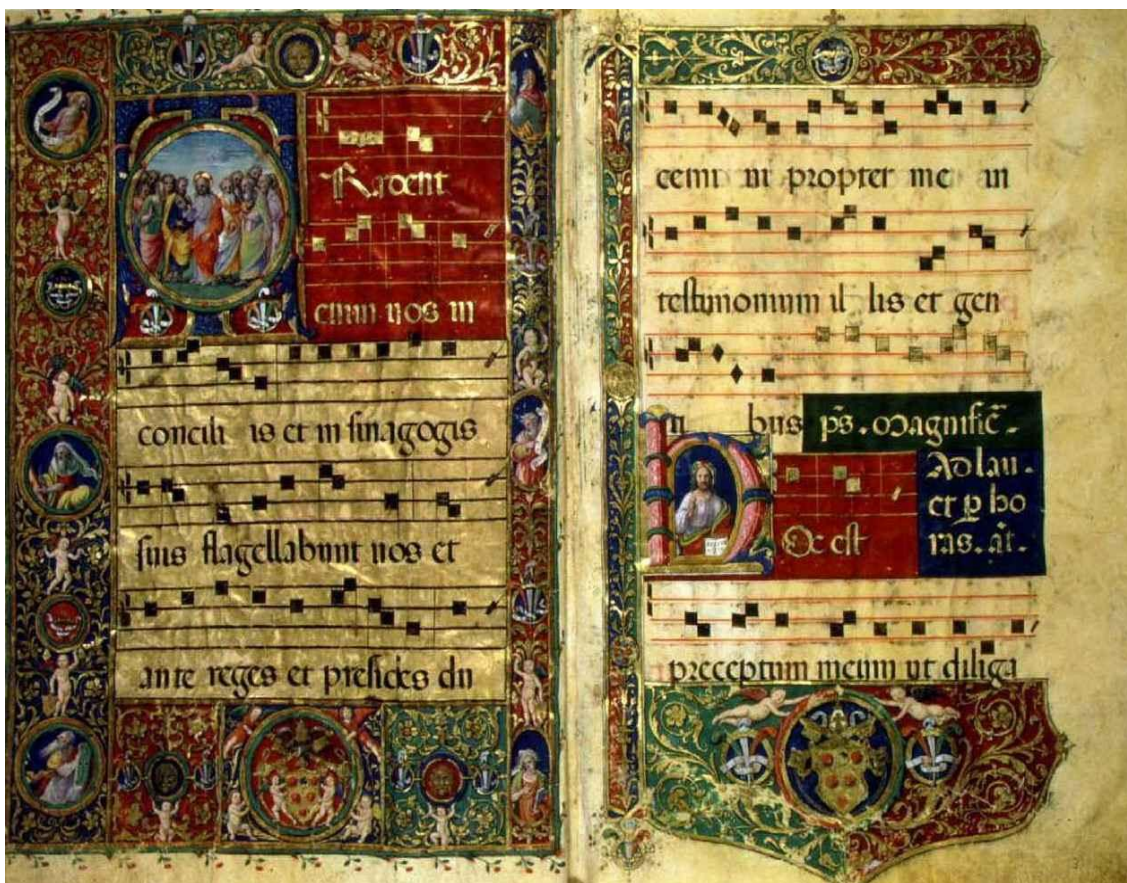 TRadent
enim uos in
concili is et in sinagogis
suis flagellabunt uos et
ante reges et presides du
cemi ni propter me in
testimonium il lis et gen
ti bus p̄s. Magnific̄.
Ad lau.
et p̱ ho
ras. āt.
HOc est
preceptum meum ut diliga